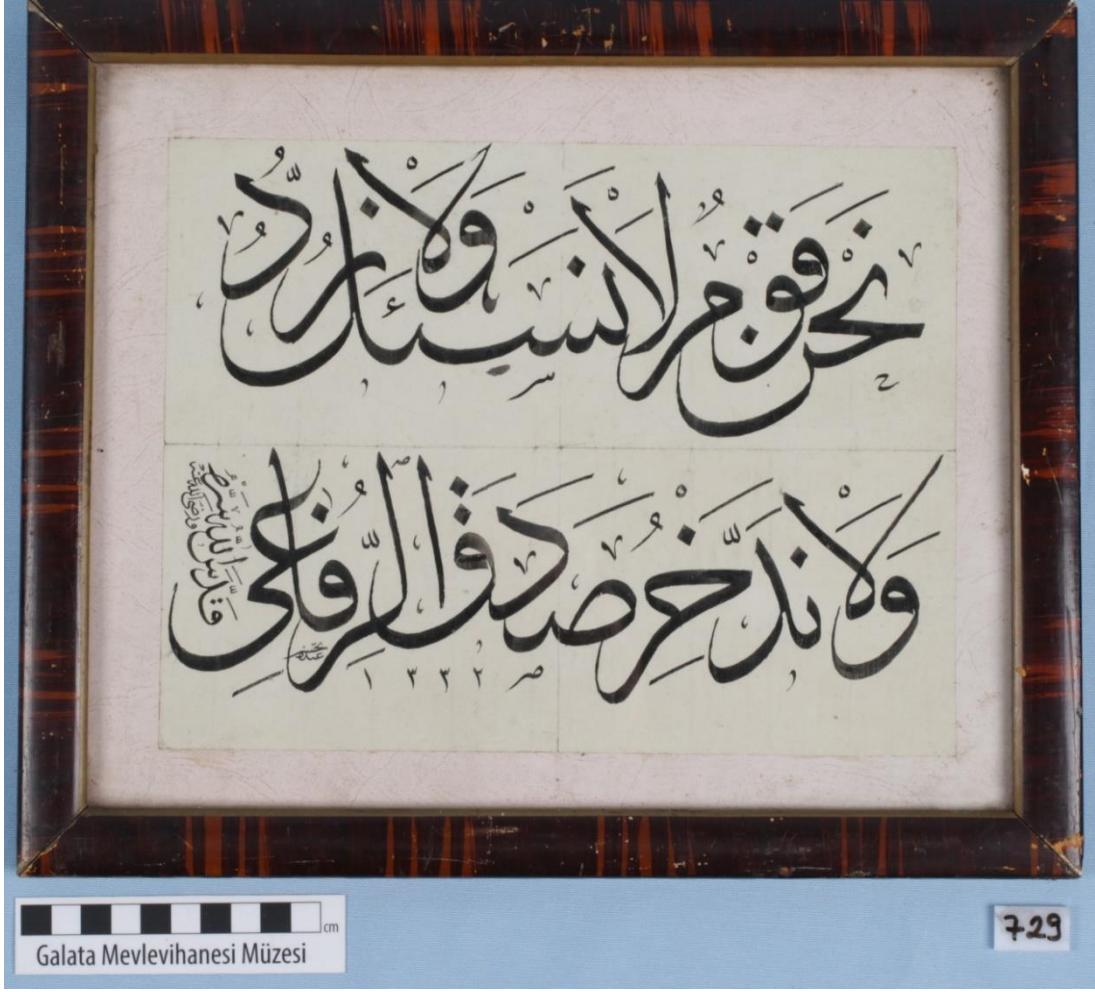 نحن قوم لا نسئل ولا نردّ
ولا ندّخر صدق الرّفاعى
قدّس الله سرّه
١٣٣٢
Galata Mevlevihanesi Müzesi
cm
729